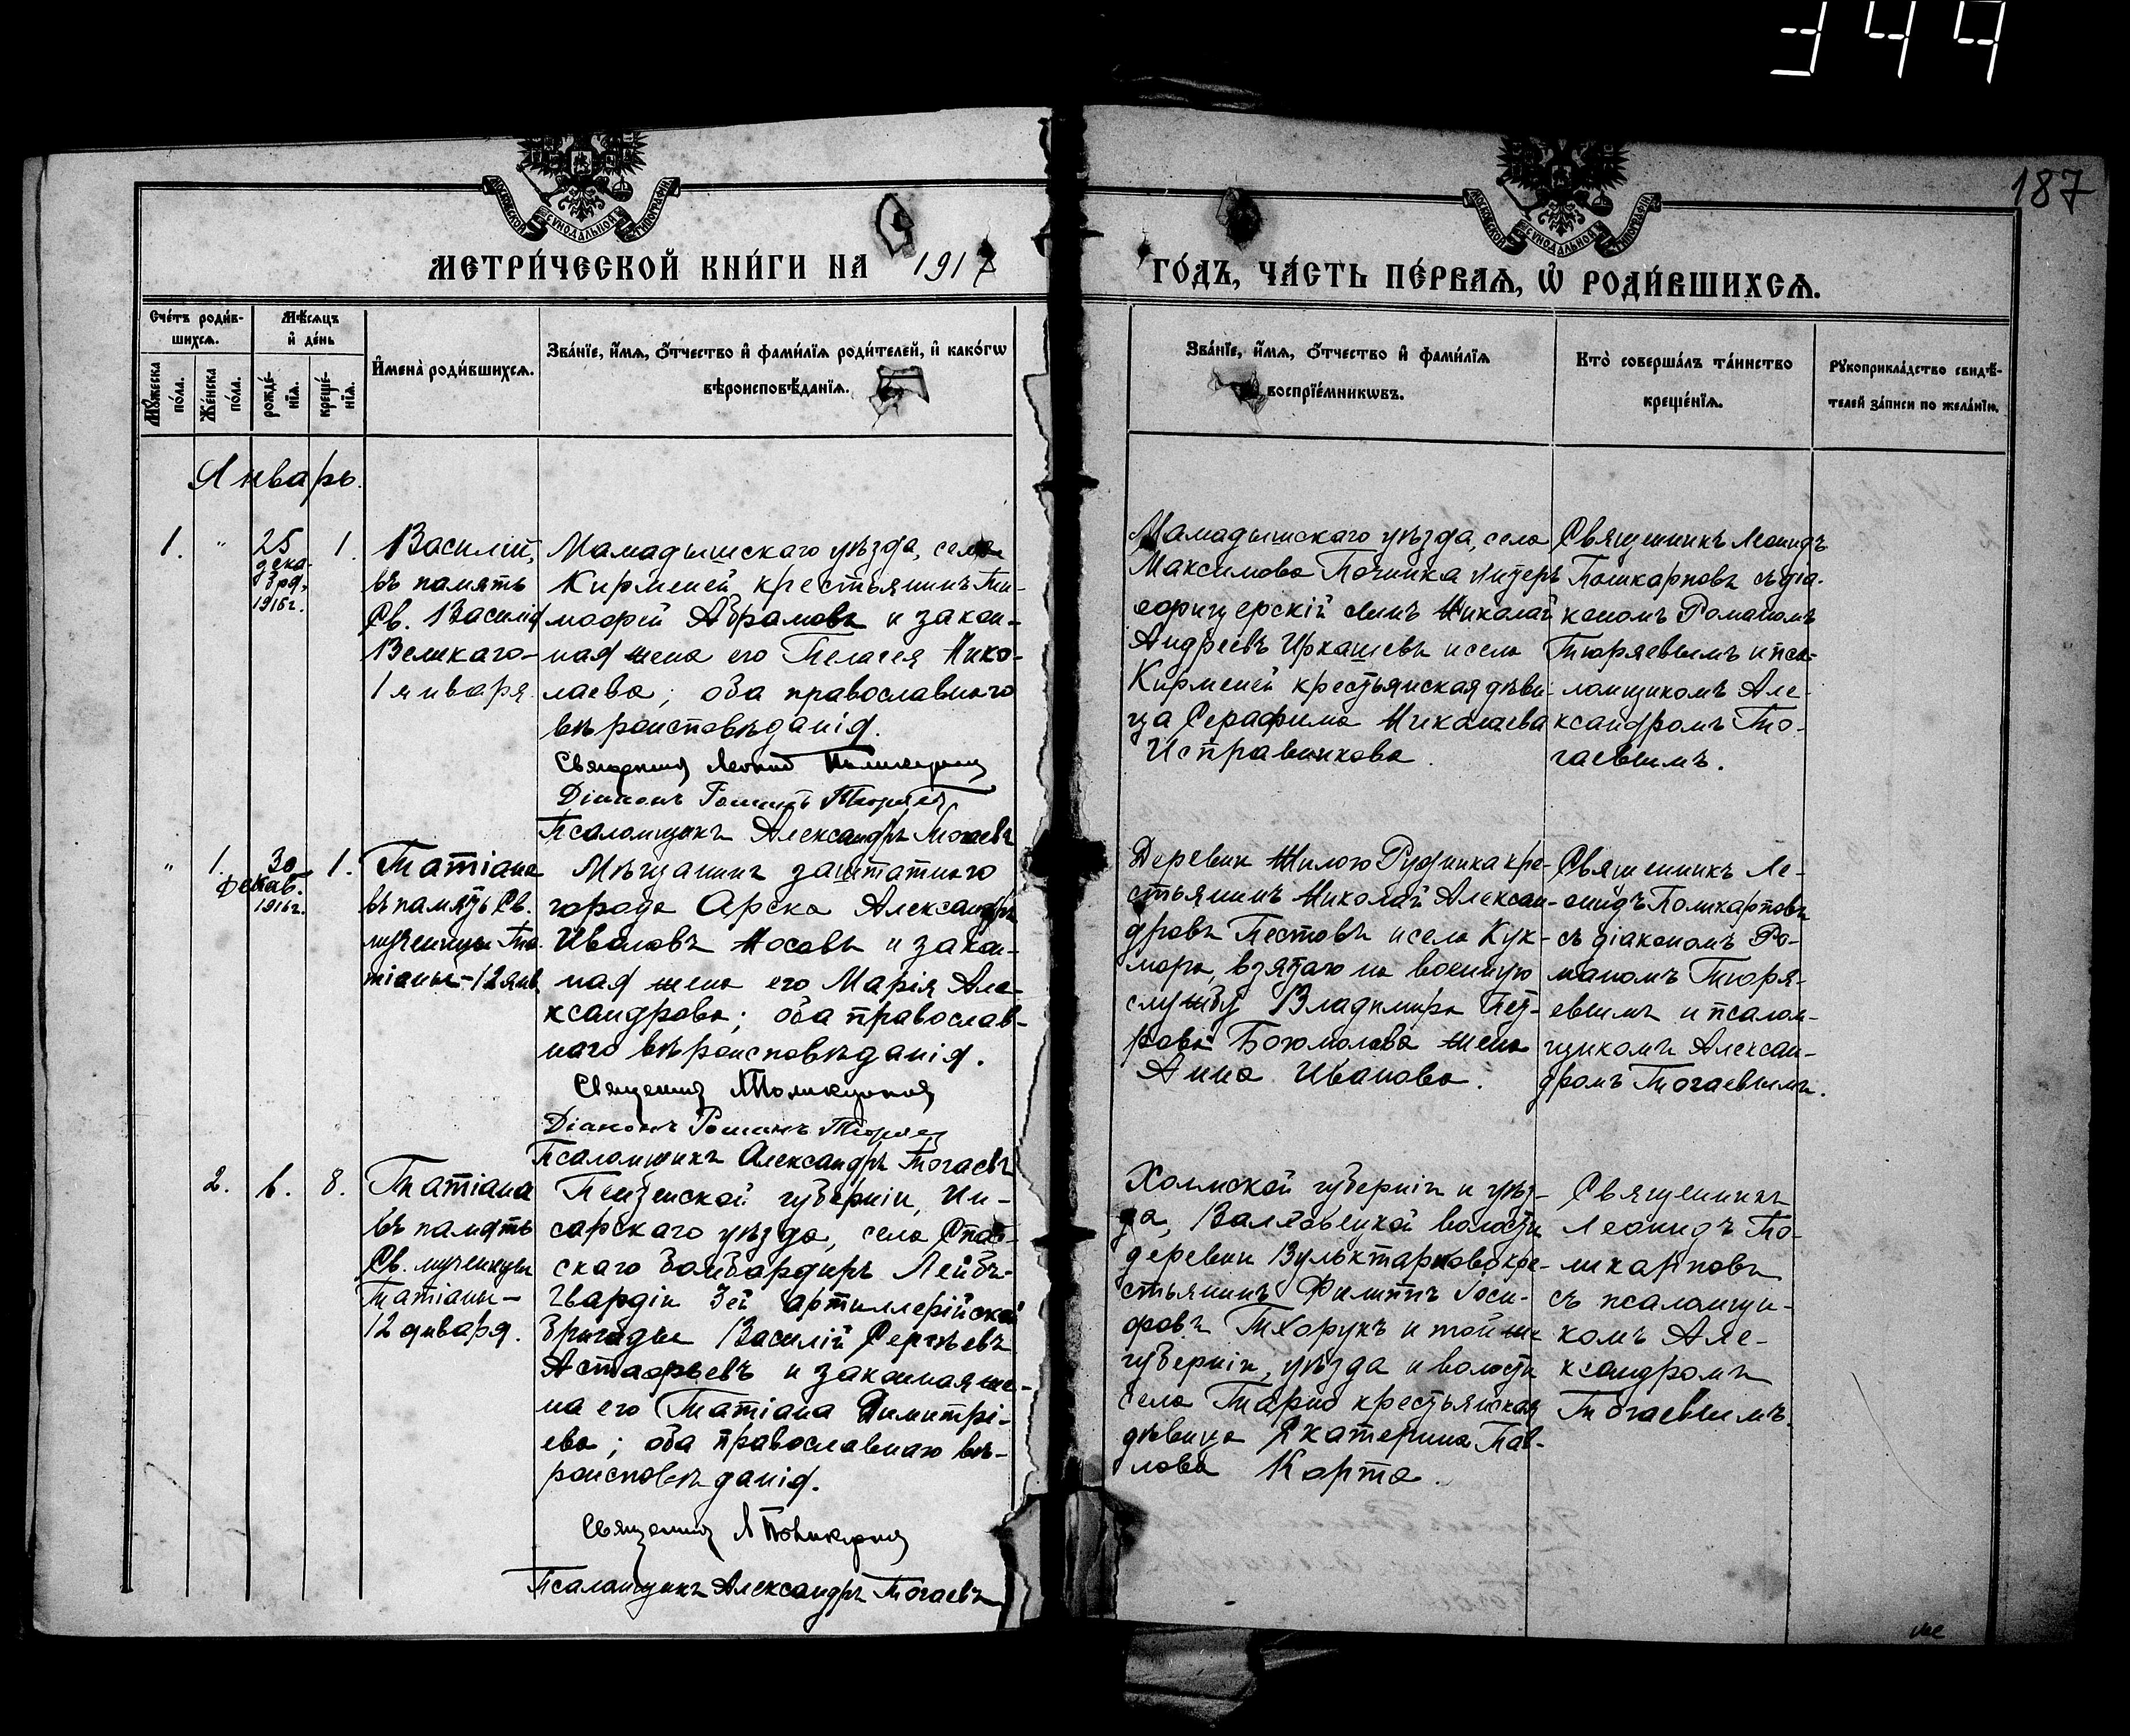 344
187
МОСКОВСКОЙ СУНОДАЛЬНОЙ ТИПОГРАФІИ
МОСКОВСКОЙ СУНОДАЛЬНОЙ ТИПОГРАФІИ
МЕТРИ́ЧЕСКОЙ КНИ́ГИ НА 1917
ГО́ДЪ, ЧА́СТЬ ПЕ́РВАѦ, Ѡ҆ РОДИ́ВШИХСѦ.
Сче́тъ роди́в-
шихсѧ.
Мѣ́сѧцъ
и҆ де́нь
Мꙋ́жеска
по́ла.
Же́нска
по́ла.
рожде́-
нїѧ.
креще́-
нїѧ.
И҆мена̀ роди́вшихсѧ.
Зва́нїе, и҆́мѧ, ѻ҆́тчество и҆ фами́лїѧ роди́телей, и҆ како́гѡ
вѣроисповѣ́данїѧ.
Зва́нїе, и҆́мѧ, ѻ҆́тчество и҆ фами́лїѧ
воспрїе́мникѡвъ.
Кто̀ соверша́лъ та́инство
креще́нїѧ.
Рꙋкоприкла́дство свидѣ́-
телей за́писи по жела́нїю.
Январь.
1. " 25
дека-
бря,
1916 г.
1.
Василій,
въ память
Св. Василія
Великаго-
1 января.
Мамадышскаго уѣзда, села
Кирменей крестьянинъ Ти-
моѳей Абрамовъ и закон-
ная жена его Пелагея Нико-
лаева; оба православнаго
вѣроисповѣданія.
Священникъ Леонидъ Поликарповъ
Діаконъ Романъ Тюряевъ
Псаломщикъ Александръ Тогаевъ
Мамадышскаго уѣзда, села
Максимова Починка унтеръ
офицерскій сынъ Николай
Андреевъ Иркашевъ и села
Кирменей крестьянская дѣви-
ца Серафима Николаева
Исправникова.
Священникъ Леонидъ
Поликарповъ съ діа-
кономъ Романомъ
Тюряевымъ и пса-
ломщикомъ Але-
ксандромъ То-
гаевымъ.
" 1. 30
декаб.
1916 г.
1.
Татіана
въ память Св.
мученицы Та-
тіаны-12 янв.
Мѣщанинъ заштатнаго
города Арска Александръ
Ивановъ Носовъ и закон-
ная жена его Марія Але-
ксандрова; оба православ-
наго вѣроисповѣданія.
Священникъ Л Поликарповъ
Діаконъ Романъ Тюряевъ
Псаломщикъ Александръ Тогаевъ
Деревни Жилого Рудника кре-
стьянинъ Николай Алексан-
дровъ Пестовъ и села Кук-
мора, взятаго на военную
службу Владимира Пет-
рова Богомолова жена
Анна Иванова.
Священникъ Ле-
онидъ Поликарповъ
съ діакономъ Ро-
маномъ Тюря-
евымъ и псалом-
щикомъ Алексан-
дромъ Тогаевымъ.
2. 6. 8.
Татіана
въ память
Св. мученицы
Татіаны-
12 января.
Пензенской губерніи, Ин-
сарскаго уѣзда, села Спас-
скаго бомбардиръ Лейбъ-
Гвардіи 3ей артиллерійской
бригады Василій Сергѣевъ
Астафьевъ и законная же-
на его Татіана Димитрі-
ева; оба православнаго вѣ-
роисповѣданія.
Священникъ Л Поликарповъ
Псаломщикъ Александръ Тогаевъ
Холмской губерніи и уѣз-
да, волости
деревни кре-
стьянинъ Филиппъ Іоси-
фовъ Тхорукъ и той же
губерніи, уѣзда и волости
села Тарно крестьянская
дѣвица Екатерина Пав-
лова Корта.
Священникъ
Леонидъ По-
ликарповъ
съ псаломщи-
комъ Але-
ксандромъ
Тогаевымъ.